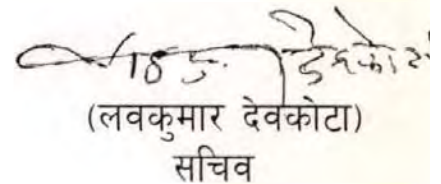 (लवकुमार देवकोटा)
सचिव